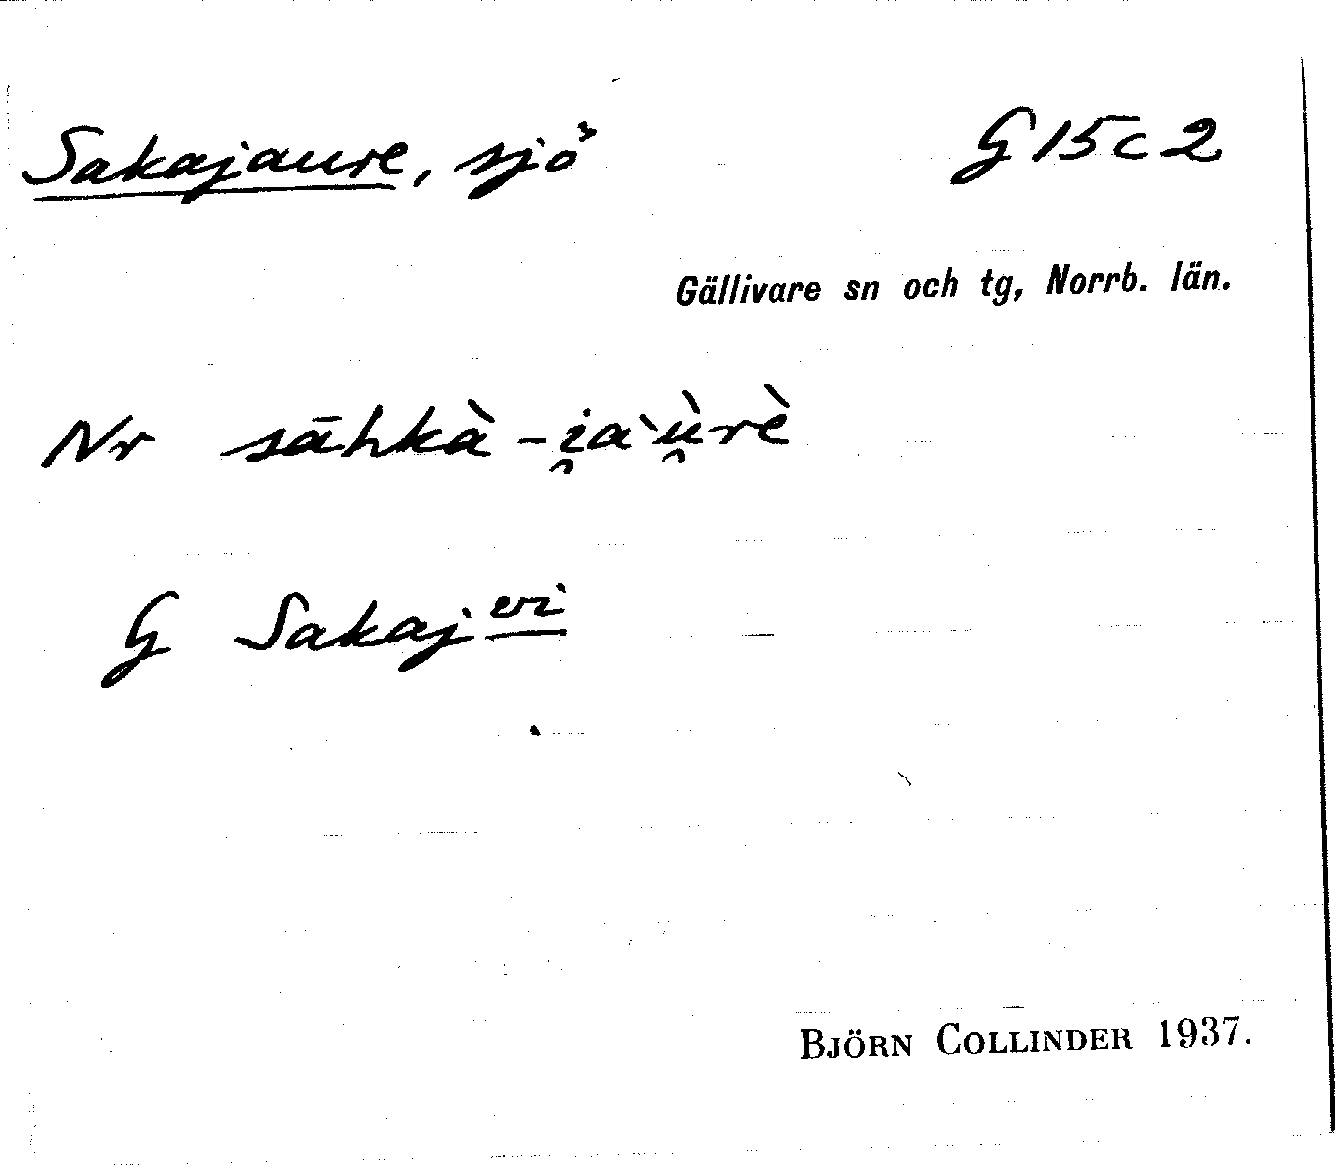 Sakajaure, sjö G 15 c 2
Gällivare sn och tg, Norrb. län.
Nr sāhkà-i̯aˋù̯rè
G Sakajvri
BJÖRN COLLINDER 1937.